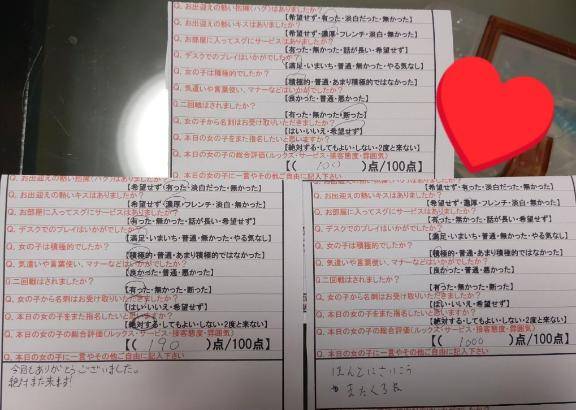 Q. お出迎えの熱い抱擁(ハグ)はありましたか?
【希望せず・有った・淡白だった・無かった】
Q. お出迎えの熱いキスはありましたか?
【希望せず・濃厚・フレンチ・淡白・無かった】
Q. お部屋に入ってスグにサービスはありましたか?
【有った・無かった・話が長い・希望せず】
Q. デスクでのプレイはいかがでしたか?
【満足・いまいち・無かった・やる気なし】
Q. 女の子は積極的でしたか?
【積極的・普通・あまり積極的ではなかった】
Q. 気遣いや言葉使い、マナーなどはいかがでしたか?
【良かった・普通・悪かった】
Q. 二回戦はされましたか?
【有った・無かった・断った】
Q. 女の子から名刺はお受け取りいただきましたか?
【はい・いいえ・希望せず】
Q. 本日の女の子をまた指名したいと思いますか?
【絶対する・してもよい・しない・2度と来ない】
Q. 本日の女の子の総合評価(ルックス・サービス・接客態度・雰囲気)
【( 100 )点/100点】
Q. 本日の女の子に一言やその他ご自由に記入下さい
【希望せず・有った・淡白だった・無かった】
Q. お出迎えの熱いキスはありましたか?
【希望せず・濃厚・フレンチ・淡白・無かった】
Q. お部屋に入ってスグにサービスはありましたか?
【有った・無かった・話が長い・希望せず】
Q. デスクでのプレイはいかがでしたか?
【満足・いまいち・無かった・やる気なし】
Q. 女の子は積極的でしたか?
【積極的・普通・あまり積極的ではなかった】
Q. 気遣いや言葉使い、マナーなどはいかがでしたか?
【良かった・普通・悪かった】
Q. 二回戦はされましたか?
【有った・無かった・断った】
Q. 女の子から名刺はお受け取りいただきましたか?
【はい・いいえ・希望せず】
Q. 本日の女の子をまた指名したいと思いますか?
【絶対する・してもよい・しない・2度と来ない】
Q. 本日の女の子の総合評価(ルックス・サービス・接客態度・雰囲気)
【( 190 )点/100点】
Q. 本日の女の子に一言やその他ご自由に記入下さい
今回もありがとうございました。
絶対また来ます!
【希望せず・有った・淡白だった・無かった】
Q. お出迎えの熱いキスはありましたか?
【希望せず・濃厚・フレンチ・淡白・無かった】
Q. お部屋に入ってスグにサービスはありましたか?
【有った・無かった・話が長い・希望せず】
Q. デスクでのプレイはいかがでしたか?
【満足・いまいち・無かった・やる気なし】
Q. 女の子は積極的でしたか?
【積極的・普通・あまり積極的ではなかった】
Q. 気遣いや言葉使い、マナーなどはいかがでしたか?
【良かった・普通・悪かった】
Q. 二回戦はされましたか?
【有った・無かった・断った】
Q. 女の子から名刺はお受け取りいただきましたか?
【はい・いいえ・希望せず】
Q. 本日の女の子をまた指名したいと思いますか?
【絶対する・してもよい・しない・2度と来ない】
Q. 本日の女の子の総合評価(ルックス・サービス・接客態度・雰囲気)
【( 1000 )点/100点】
Q. 本日の女の子に一言やその他ご自由に記入下さい
ほんとにさいこう
またくる